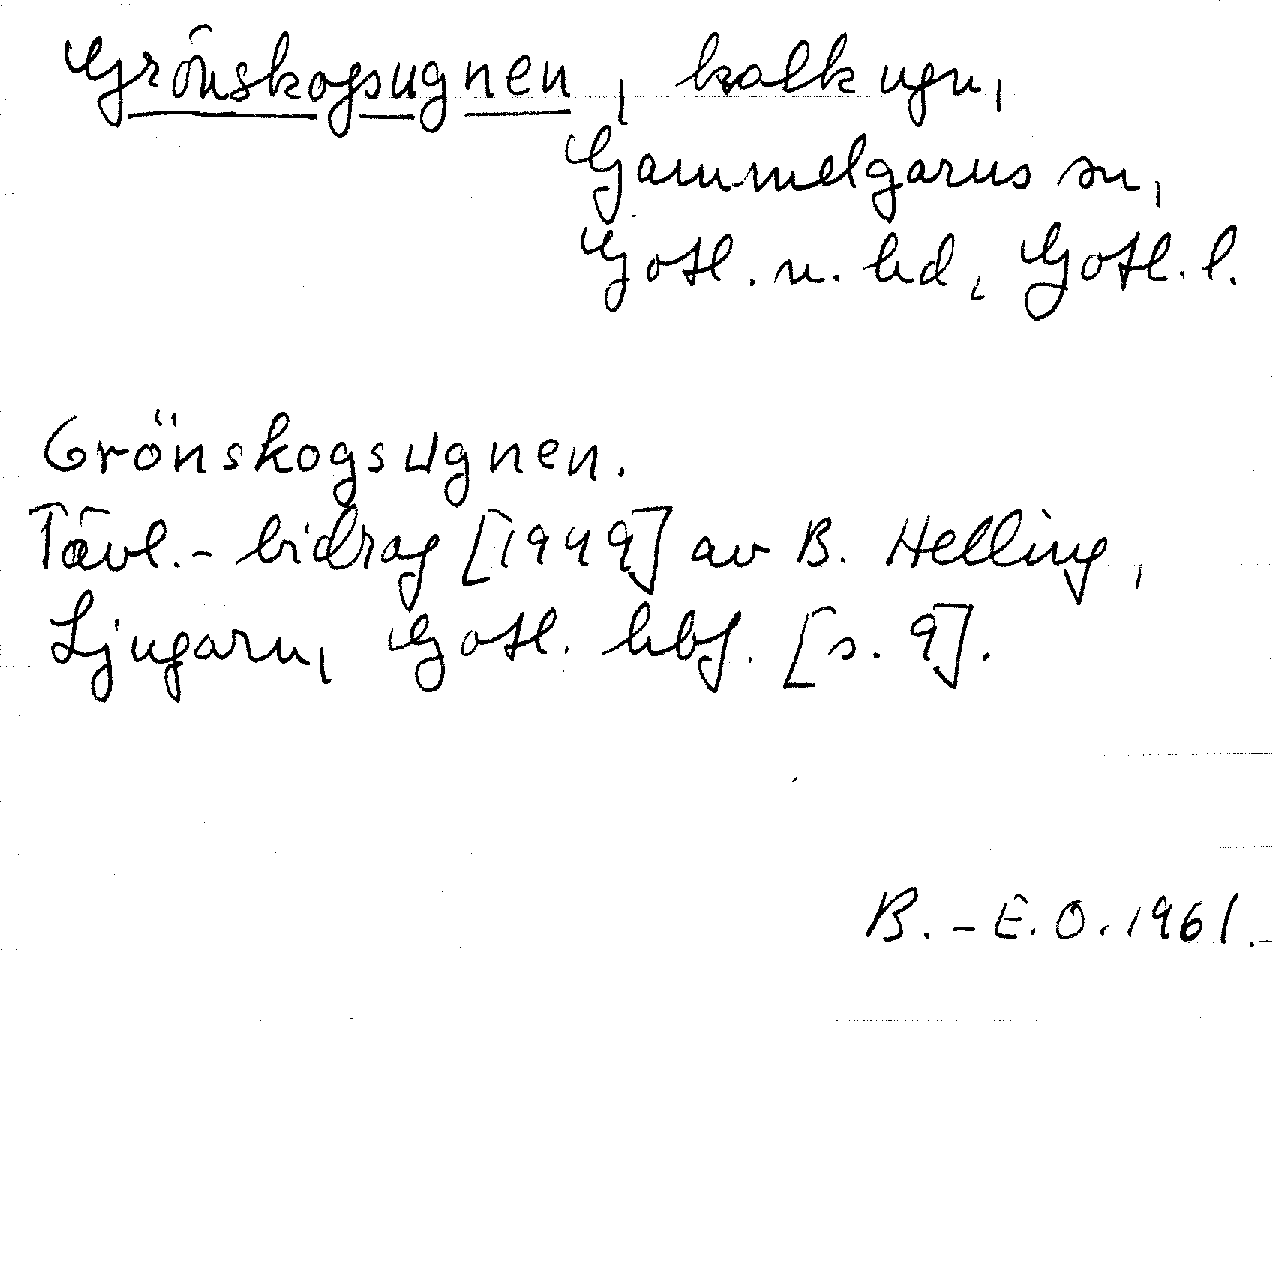 Grönskogsugnen, kalkugn,
Gammelgarns sn,
Gotl. n. hd, Gotl. l.
Grönskogsugnen.
Tävl.-bidrag [1949] av B. Helling,
Ljugarn, Gotl. hbf. [s. 9].
B.-E.O. 1961.